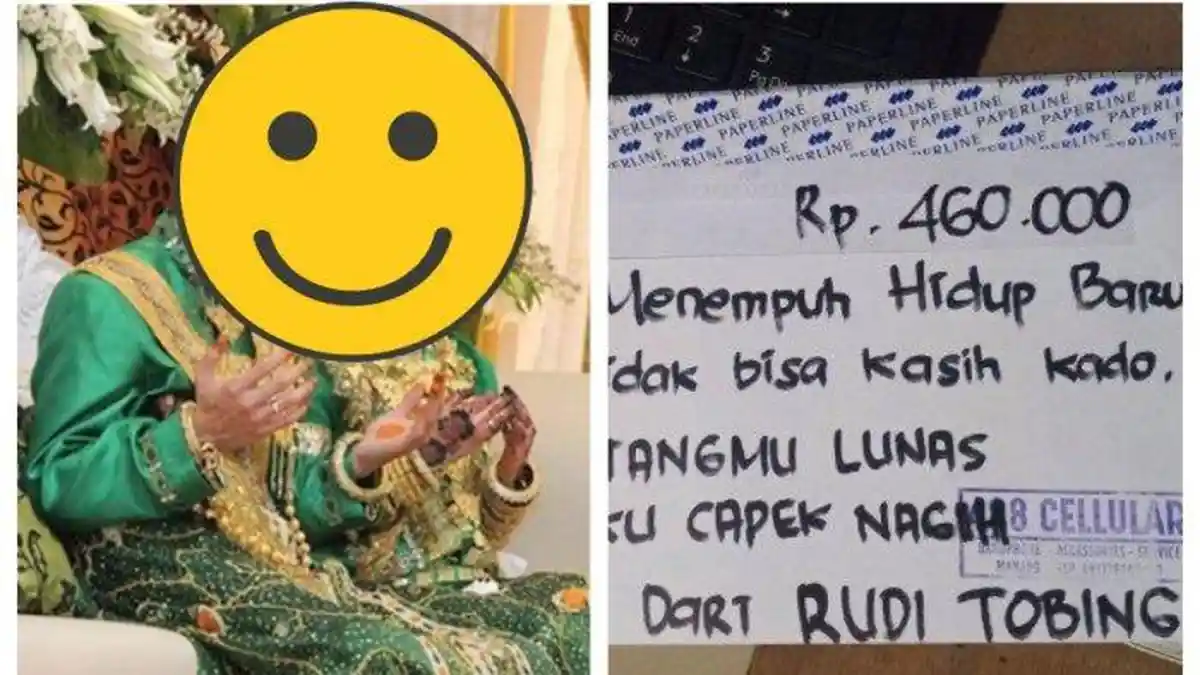 1
End
2
3
PAPERLINE PAPERLINE PAPERLINE PAPERLINE
Rp. 460.000
Menempuh Hidup Baru
dak bisa kasih kado.
TANGMU LUNAS
KU CAPEK NAGIH
8 CELLULAR
ACCESSORIES
Dari RUDI TOBING